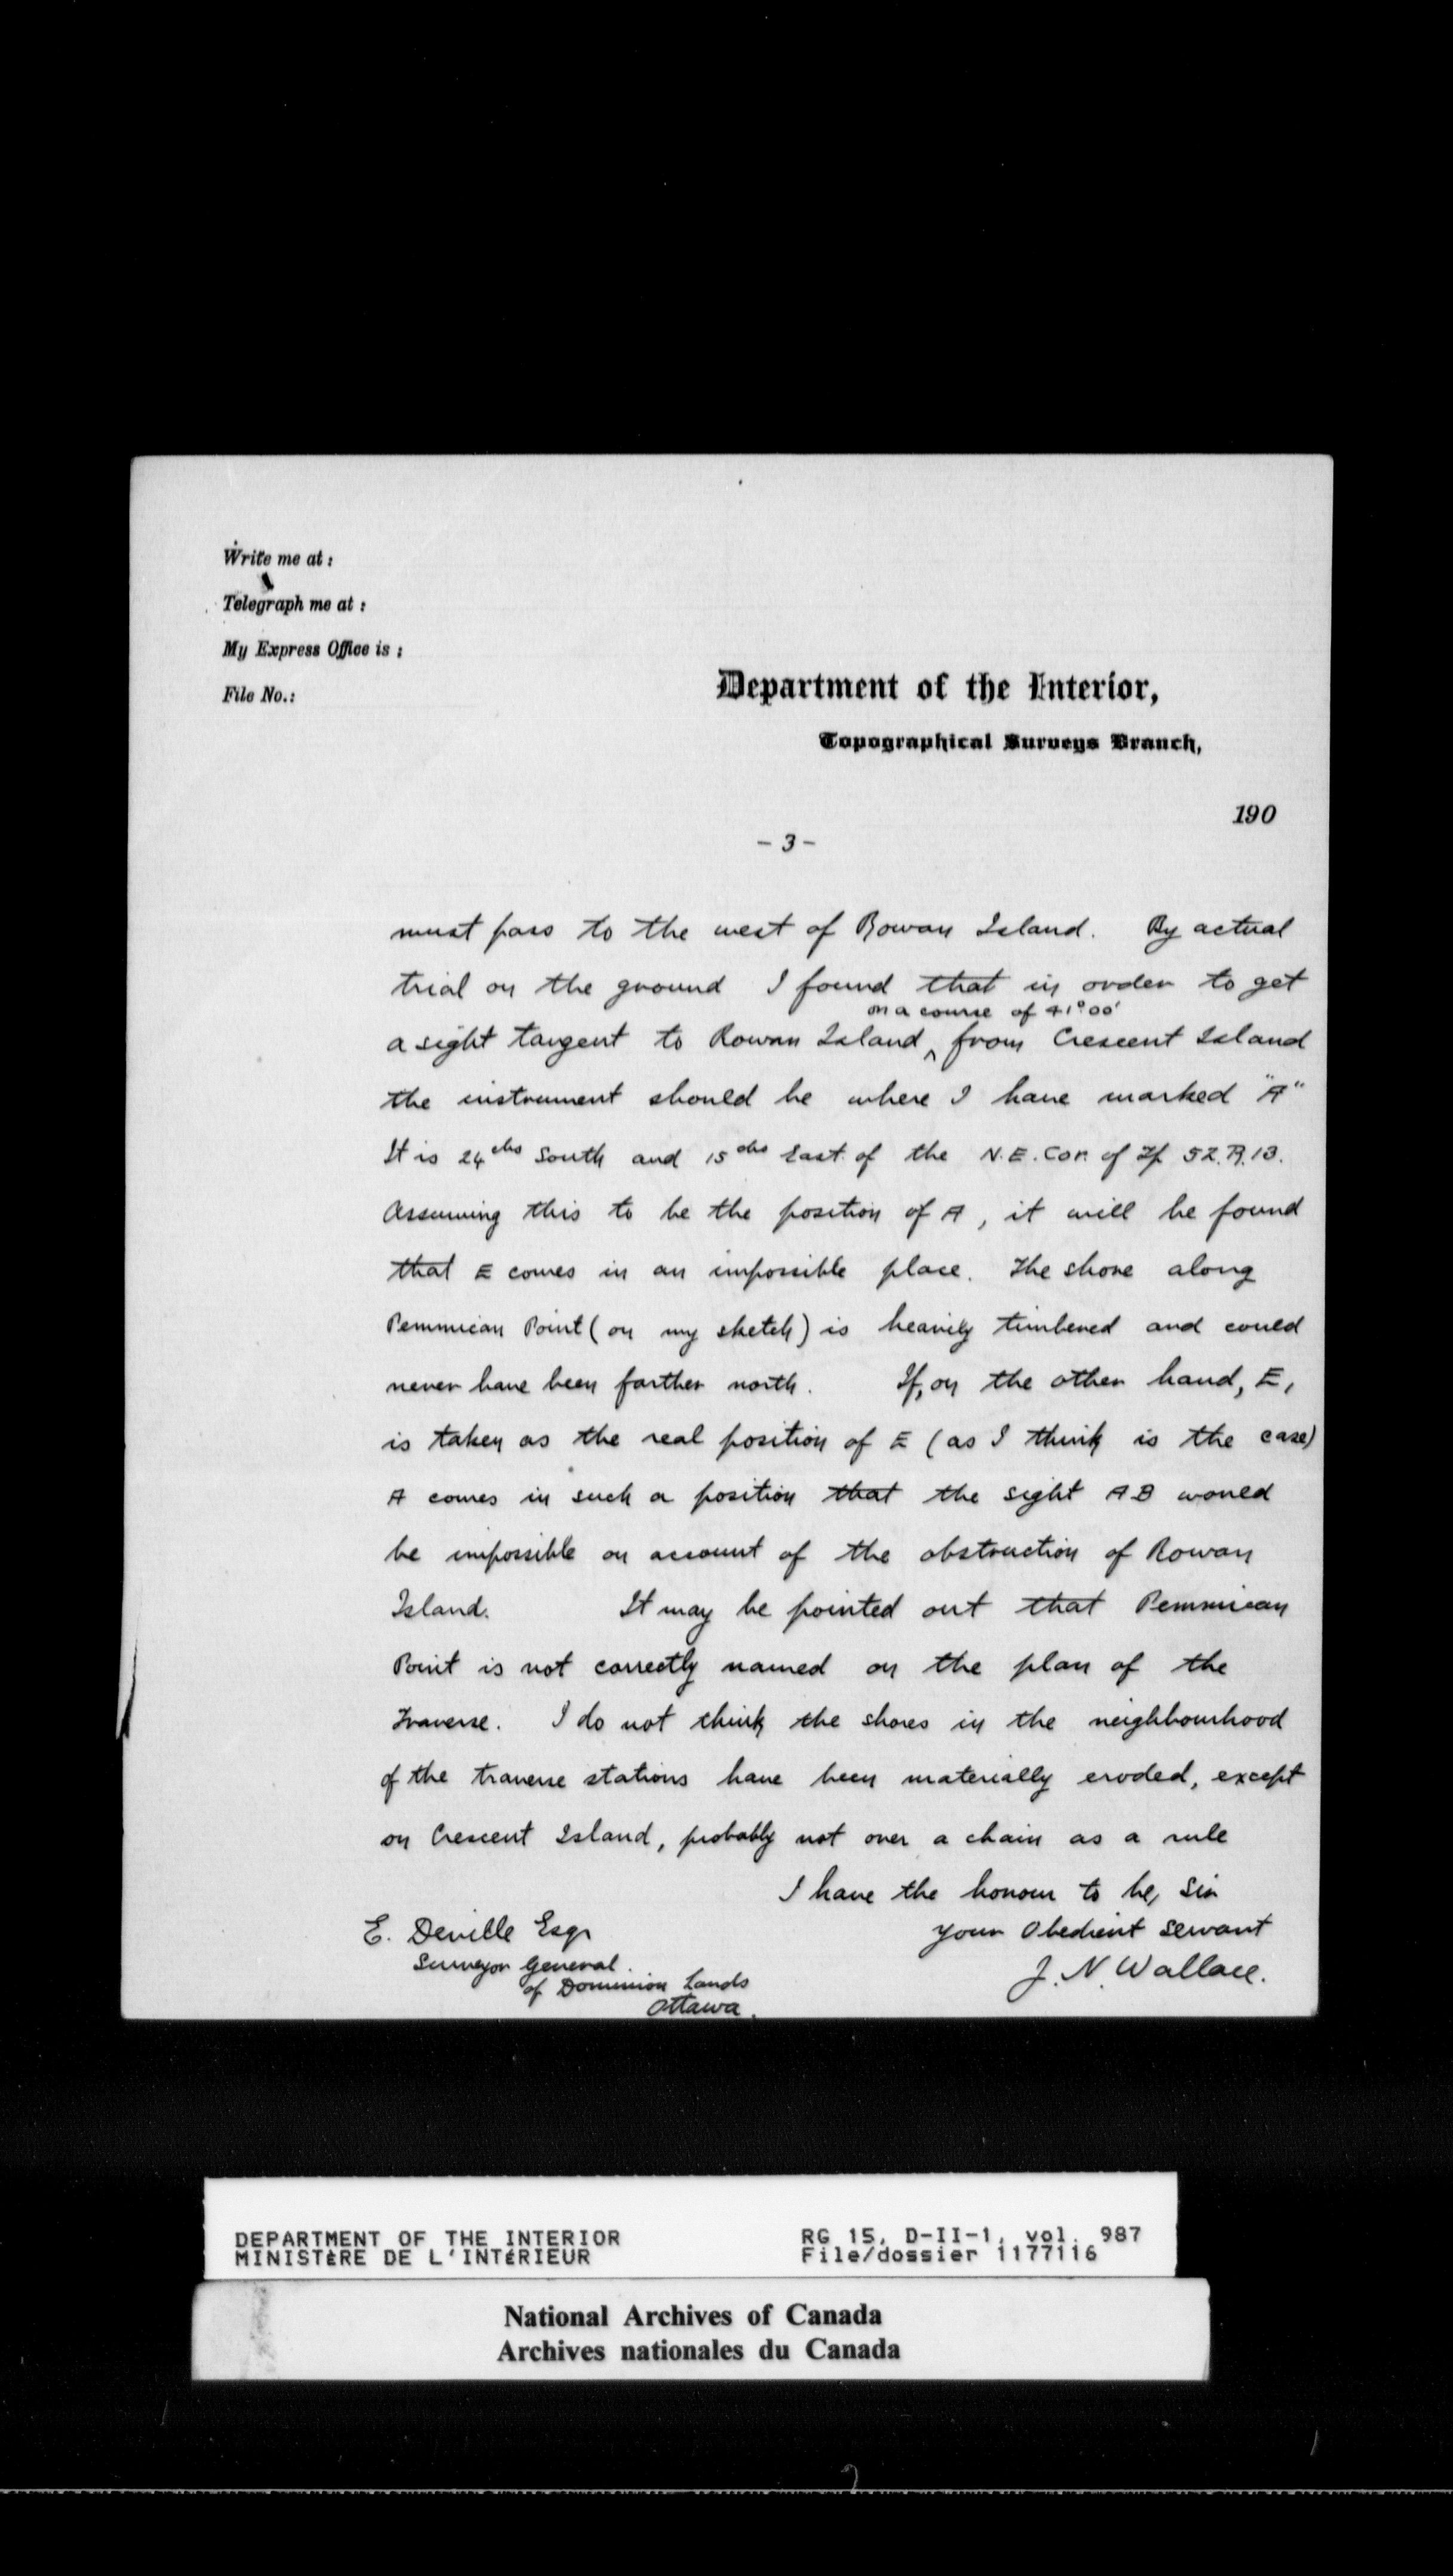 Write me at :
Telegraph me at :
My Express Office is :
File No.:
Department of the Interior,
Topographical Surveys Branch,
190
- 3 -
must pass to the west of Rowan Island. By actual
trial on the ground I found that in order to get
on a course of 41°00'
a sight tangent to Rowan Island ^ from Crescent Island
the instrument should be where I have marked "A"
It is 24 chs South and 15 chs East of the N.E. Cor. of Tp 52. R. 13.
Assuming this to be the position of A, it will be found
that E comes in an impossible place. The shore along
Pemmican Point (on my sketch) is heavily timbered and could
never have been farther north. If, on the other hand, E,
is taken as the real position of E (as I think is the case)
A comes in such a position that the sight AB would
be impossible on account of the obstruction of Rowan
Island. It may be pointed out that Pemmican
Point is not correctly named on the plan of the
Traverse. I do not think the shores in the neighbourhood
of the traverse stations have been materially eroded, except
on Crescent Island, probably not over a chain as a rule
I have the honour to be, Sir
Your Obedient Servant
J. N. Wallace.
E. Deville Esqr
Surveyor General.
of Dominion Lands
Ottawa.
DEPARTMENT OF THE INTERIOR
MINISTÈRE DE L'INTÉRIEUR
RG 15, D-II-1, vol. 987
File/dossier 1177116
National Archives of Canada
Archives nationales du Canada